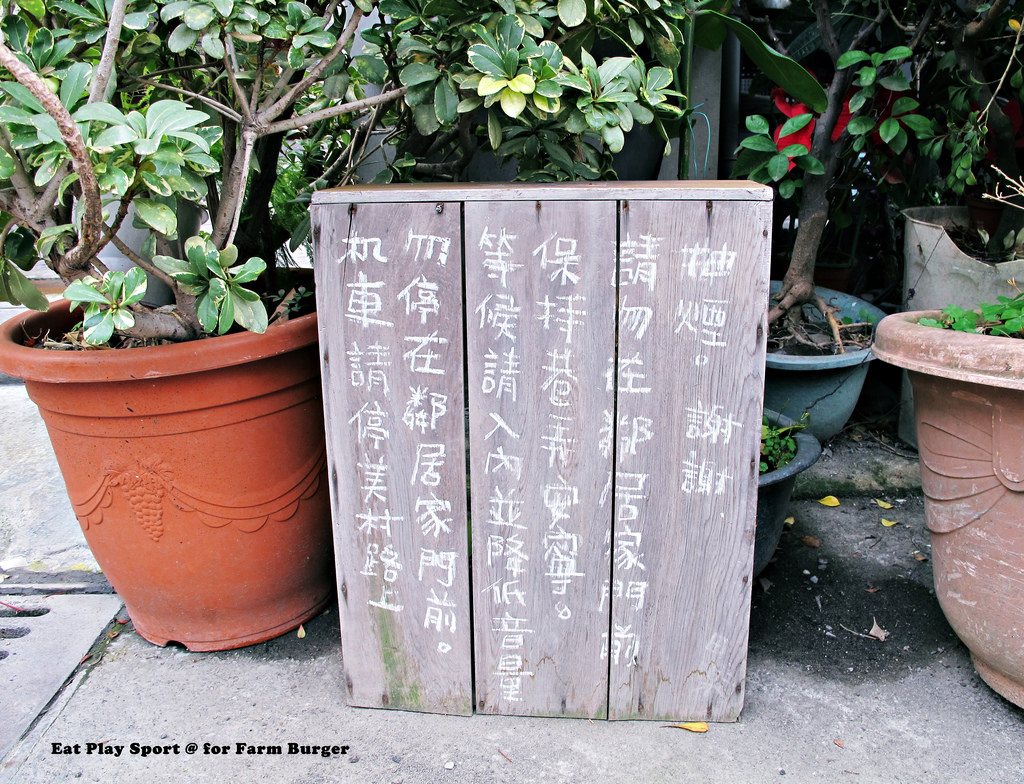 机車請停美村路上
勿停在鄰居家門前。
等候請入內並降低音量
保持巷弄安寧。
請勿在鄰居家門前
抽煙。謝謝.
Eat Play Sport @ for Farm Burger